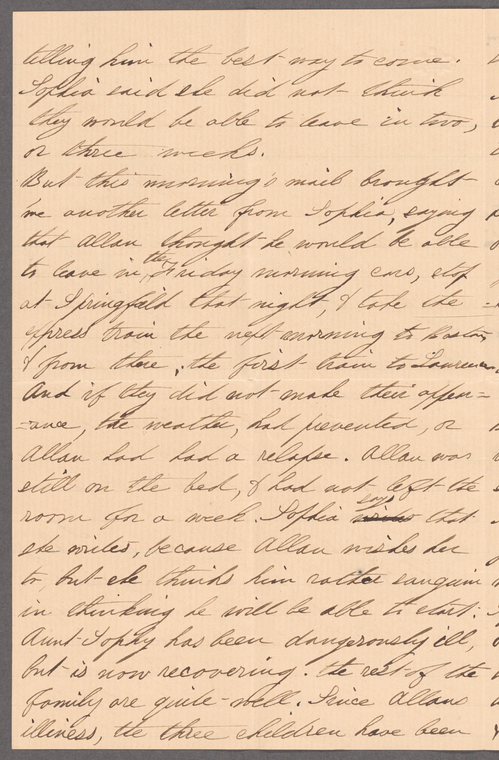 telling him the best way to come.
Sophia said she did not think
they would be able to leave in two,
or three weeks.
But this morning's mail brought
me another letter from Sophia, saying
that Allan thought he would be able
to leave in the Friday morning cars, stop
at Springfield that night, & take the
express train the next morning to Boston
& from there, the first train to Lawrence
And if they did not make their appear=
=ance, the weather, had prevented, or
Allan had had a relapse. Allan was
still on the bed, & had not left the
room for a week. Sophia says that
she writes, because Allan wishes her
to but she thinks him rather sanguin
in thinking he will be able to start.
Aunt Sophy has been dangerously ill,
but is now recovering. the rest of the
family are quite well. Since Allans
illness, the three children have been